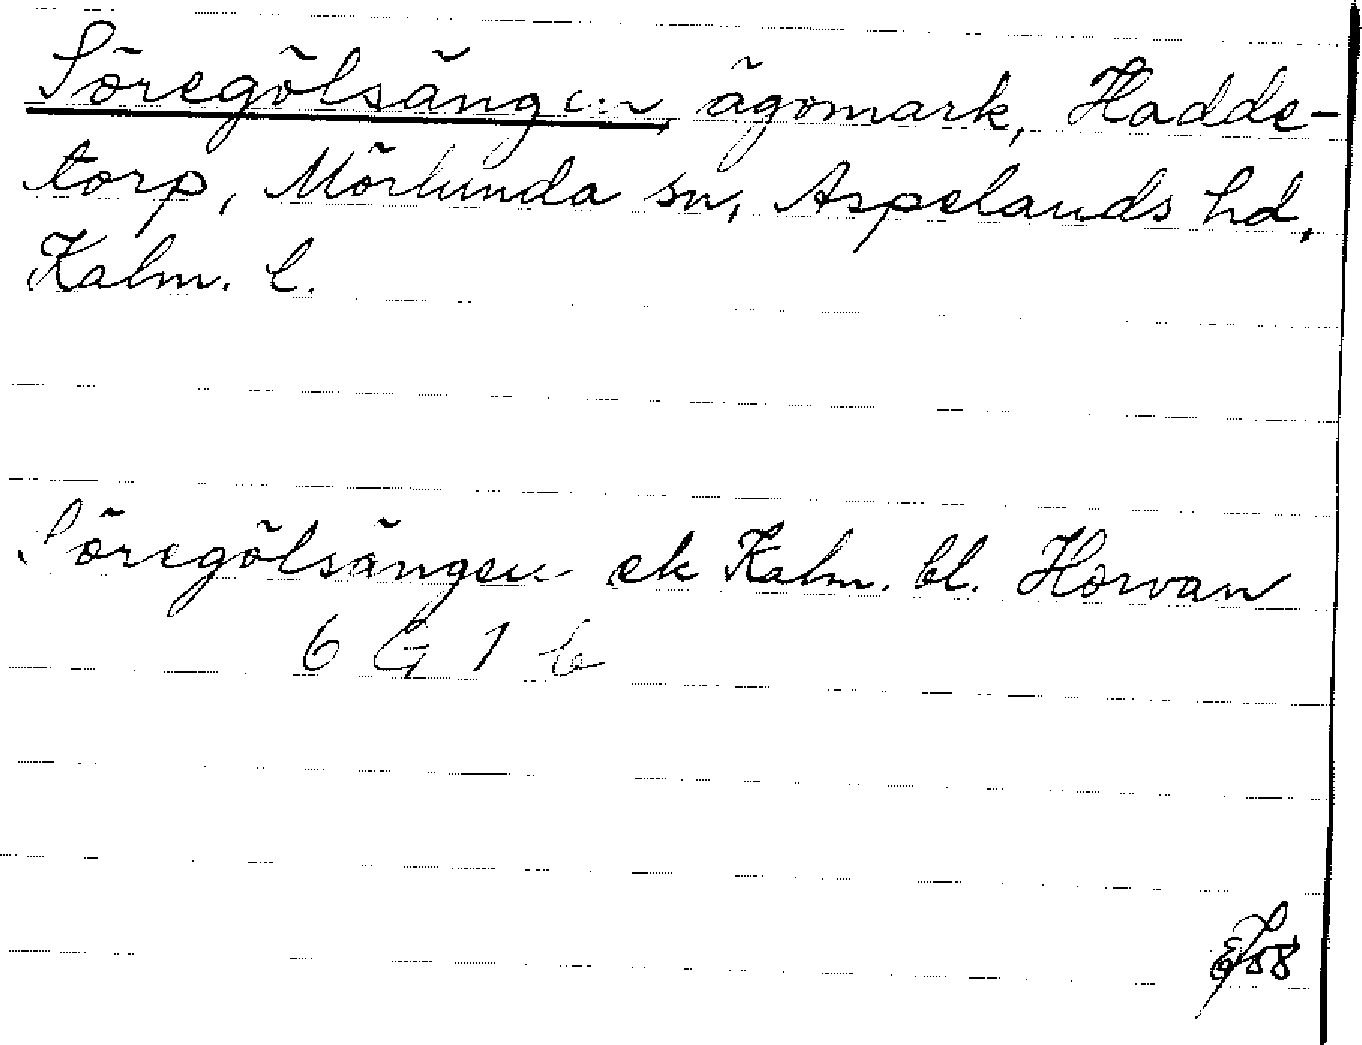 Söregölsängen, ägomark, Hadde-
torp, Mörlunda sn, Aspelands hd,
Kalm. l.
Söregölsängen ek Kalm. bl. Horvan
6 G 1 b